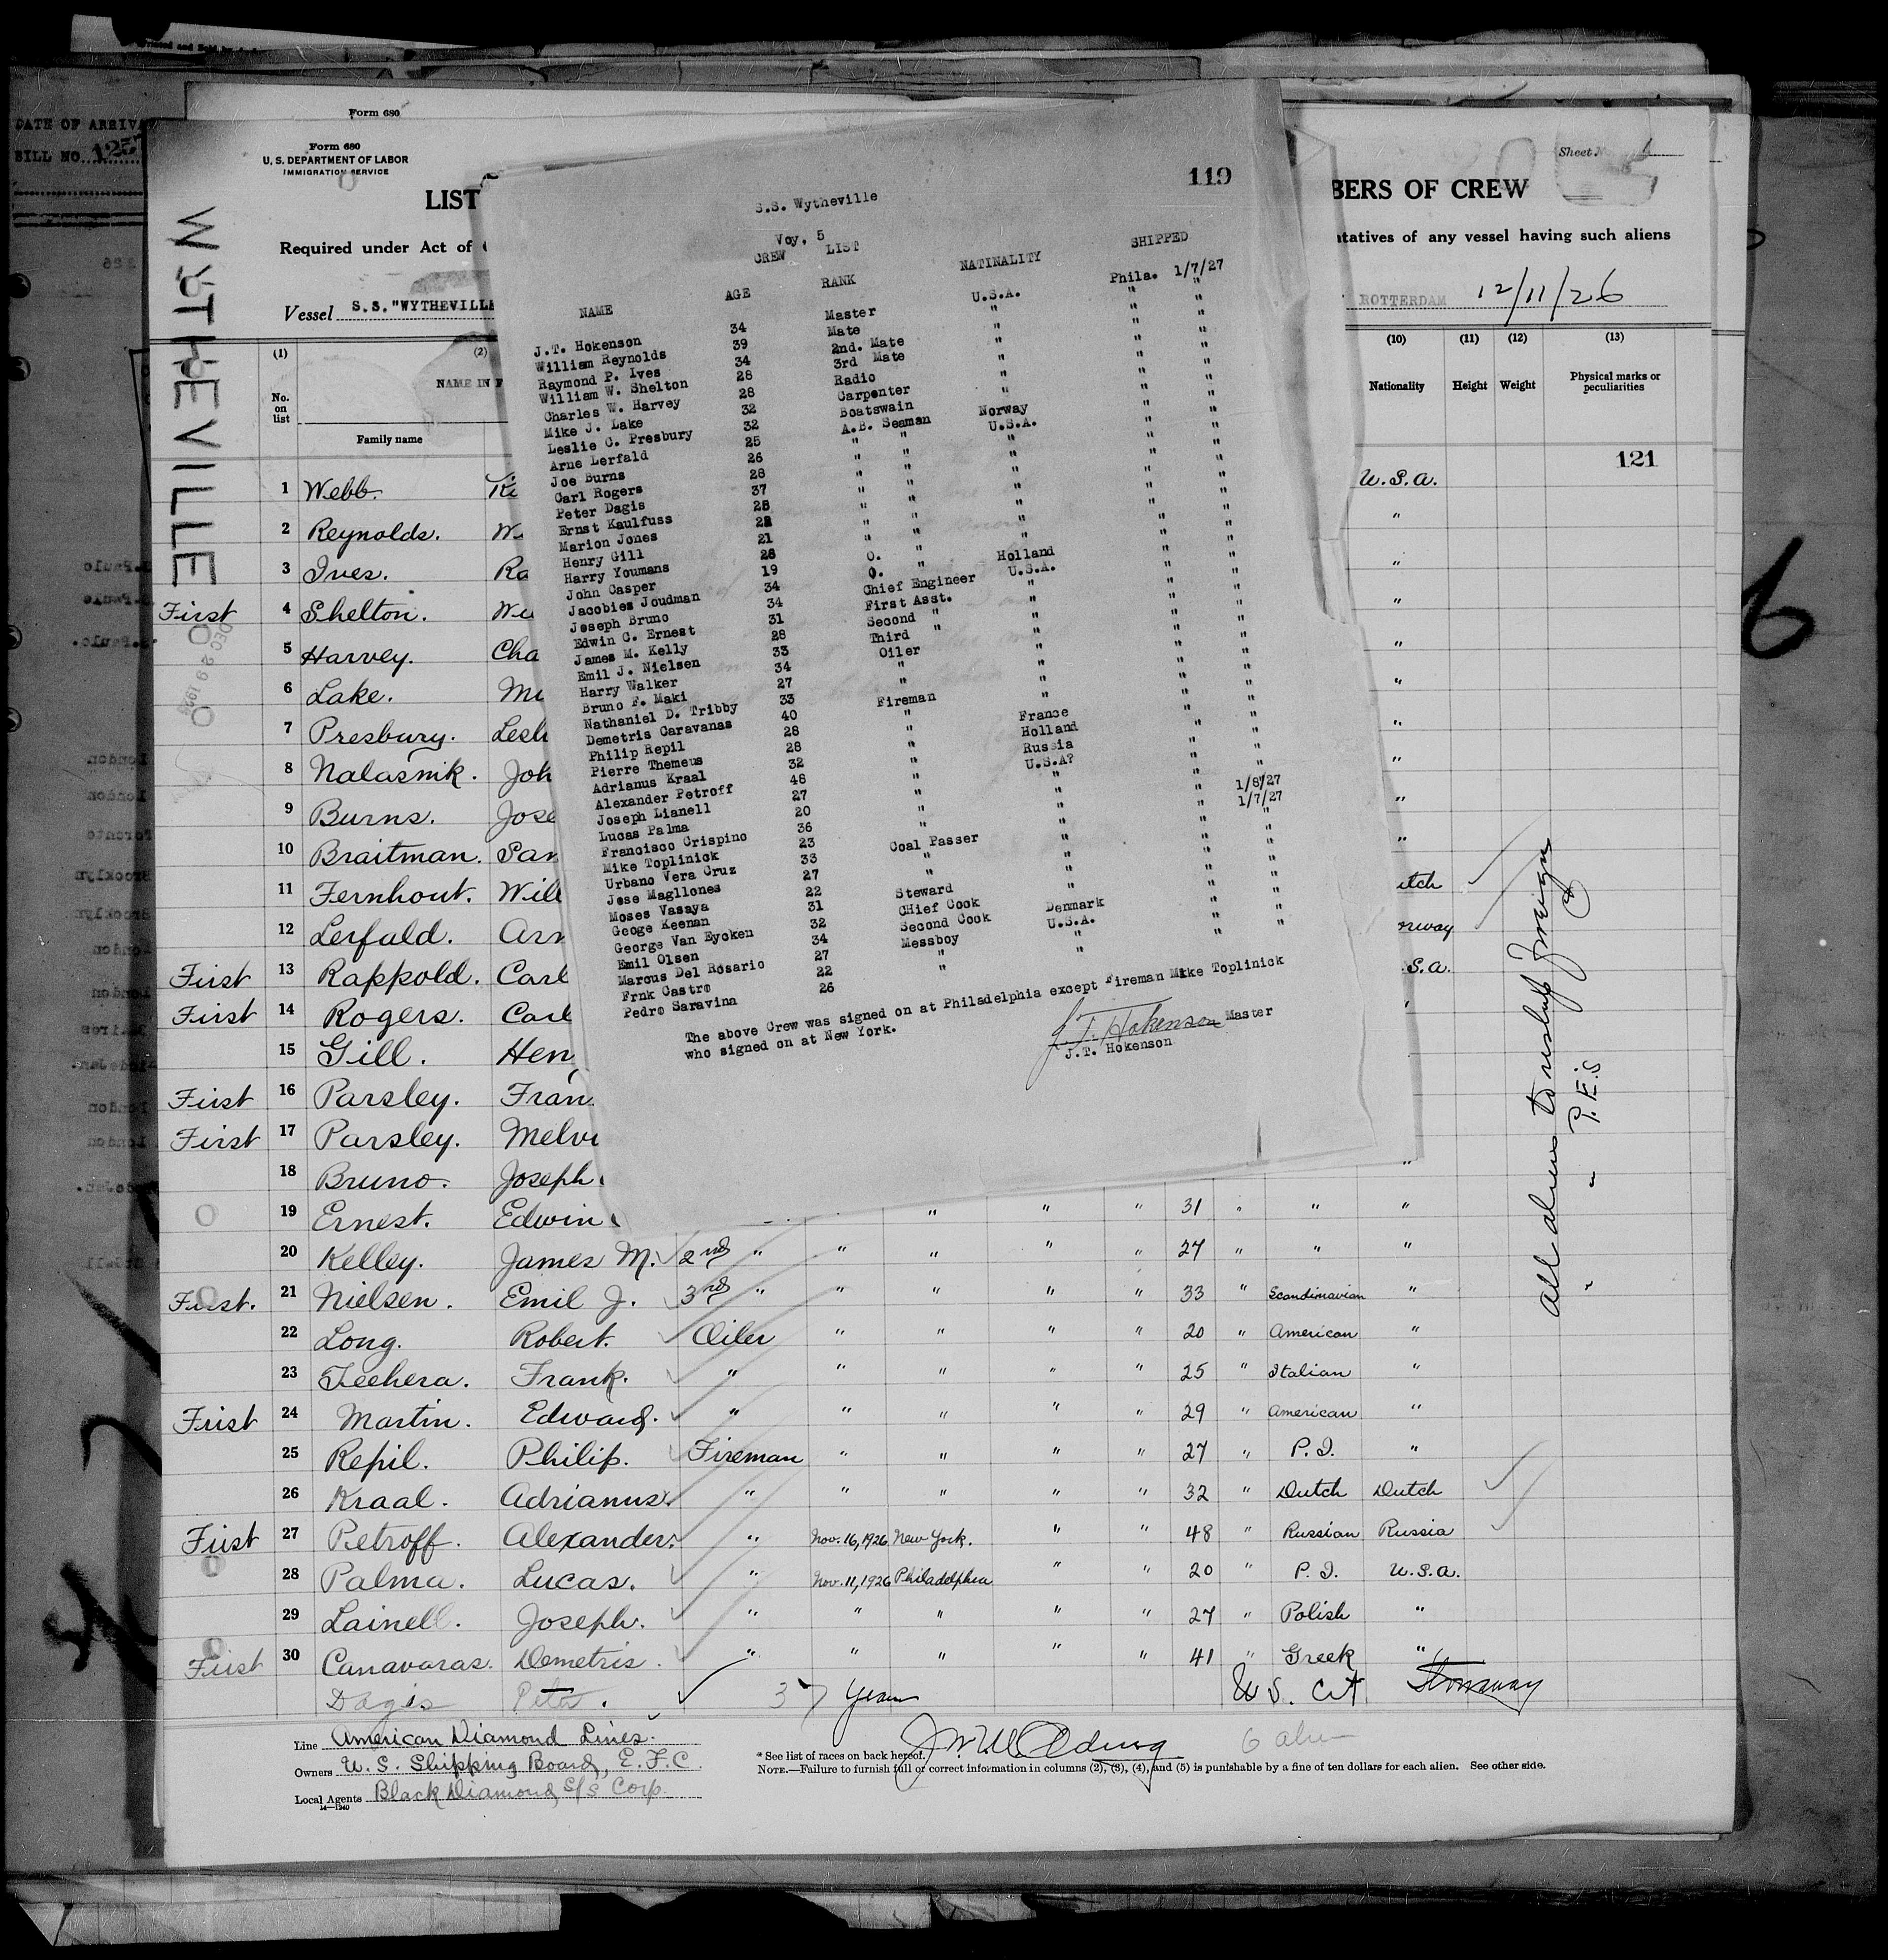 Form 680
Form 680
U. S. DEPARTMENT OF LABOR
IMMIGRATION SERVICE
DATE OF ARRIVA
BILL NO. 125
LIST
BERS OF CREW
Sheet
Required under Act of
tatives of any vessel having such aliens
Vessel S.S. "WYTHEVILLE
ROTTERDAM 12/11/26
WYTHEVILLE
119
S.S. Wytheville
Voy. 5
CREW LIST
NAME AGE RANK NATINALITY SHIPPED
J.T. Hokenson 34 Master U.S.A. Phila. 1/7/27
William Reynolds 39 Mate " " "
Raymond P. Ives 34 2nd. Mate " " "
William W. Shelton 28 3rd Mate " " "
Charles W. Harvey 28 Radio " " "
Mike J. Lake 32 Carpenter " " "
Leslie C. Presbury 32 Boatswain " " "
Arne Lerfald 25 A.B. Seaman Norway " "
Joe Burns 26 " " U.S.A. " "
Carl Rogers 28 " " " " "
Peter Dagis 37 " " " " "
Ernst Kaulfuss 28 " " " " "
Marion Jones 22 " " " " "
Henry Gill 21 " " " " "
Harry Youmans 28 " " " " "
John Casper 19 O. " " " "
Jacobies Joudman 34 O. " Holland " "
Joseph Bruno 34 Chief Engineer U.S.A. " "
Edwin C. Ernest 31 First Asst. " " "
James M. Kelly 28 Second " " " "
Emil J. Nielsen 33 Third " " " "
Harry Walker 34 Oiler " " "
Bruno F. Maki 27 " " " "
Nathaniel D. Tribby 33 " " " "
Demetris Caravanas 40 Fireman " " "
Philip Repil 28 " " " "
Pierre Themeus 28 " France " "
Adrianus Kraal 32 " Holland " "
Alexander Petroff 48 " Russia " "
Joseph Lianell 27 " U.S.A? " "
Lucas Palma 20 " " " "
Francisco Crispino 36 " " " "
Mike Toplinick 23 " " " 1/8/27
Urbano Vera Cruz 33 Coal Passer " " 1/7/27
Jose Magllones 27 " " " "
Moses Vasaya 22 " " " "
Geoge Keenan 31 Steward " " "
George Van Eycken 32 CHief Cook " " "
Emil Olsen 34 Second Cook Denmark " "
Marcus Del Rosario 27 Messboy U.S.A. " "
Frnk Castro 22 " " " "
Pedro Saravina 26 " " " "
The above Crew was signed on at Philadelphia except Fireman Mike Toplinick
who signed on at New York.
J.T. Hokenson Master
J.T. Hokenson
(1) (2) (10) (11) (12) (13)
No. on list
NAME IN F
Family name
Nationality Height Weight Physical marks or peculiarities
121
1 Webb. U.S.A.
2 Reynolds. W "
3 Ives. Ra "
First 4 Shelton. "
5 Harvey. Cha "
6 Lake. "
7 Presbury. Lesl "
8 Nalasnik. Joh "
9 Burns. Jose "
10 Braitman. Sam "
11 Fernhout. Will utch
12 Lerfald. Arn rway
First 13 Rappold. Carl S.A.
First 14 Rogers. Carl "
15 Gill. Hen
First 16 Parsley. Fran
First 17 Parsley. Melvi
18 Bruno. Joseph "
19 Ernest. Edwin " " " 31 " " "
20 Kelley. James M. 2nd " " " " " 27 " " "
First. 21 Nielsen. Emil J. 3rd " " " " " 33 " Scandinavian "
22 Long. Robert. Oiler " " " " 20 " American "
23 Teehera. Frank. " " " " " 25 " Italian "
First 24 Martin. Edward. " " " " " 29 " American "
25 Repil. Philip. Fireman " " " " 27 " P.I. "
26 Kraal. Adrianus. " " " " " 32 " Dutch Dutch
First 27 Petroff. Alexander. " Nov. 16, 1926 New York. " " 48 " Russian Russia
28 Palma. Lucas. " Nov. 11, 1926 Philadelphia " " 20 " P.I. U.S.A.
29 Lainell. Joseph. " " " " " 27 " Polish "
First 30 Canavaras. Demetris. " " " " " 41 " Greek "
Dagis Peter. 37 years U.S. Cit Stowaway
All aliens to reship foreign
" " P.E.S
6
Line American Diamond Lines.
Owners U.S. Shipping Board, E.F.C.
Local Agents Black Diamond S/S Corp.
14—1240
* See list of races on back hereof.
NOTE.—Failure to furnish full or correct information in columns (2), (3), (4), and (5) is punishable by a fine of ten dollars for each alien. See other side.